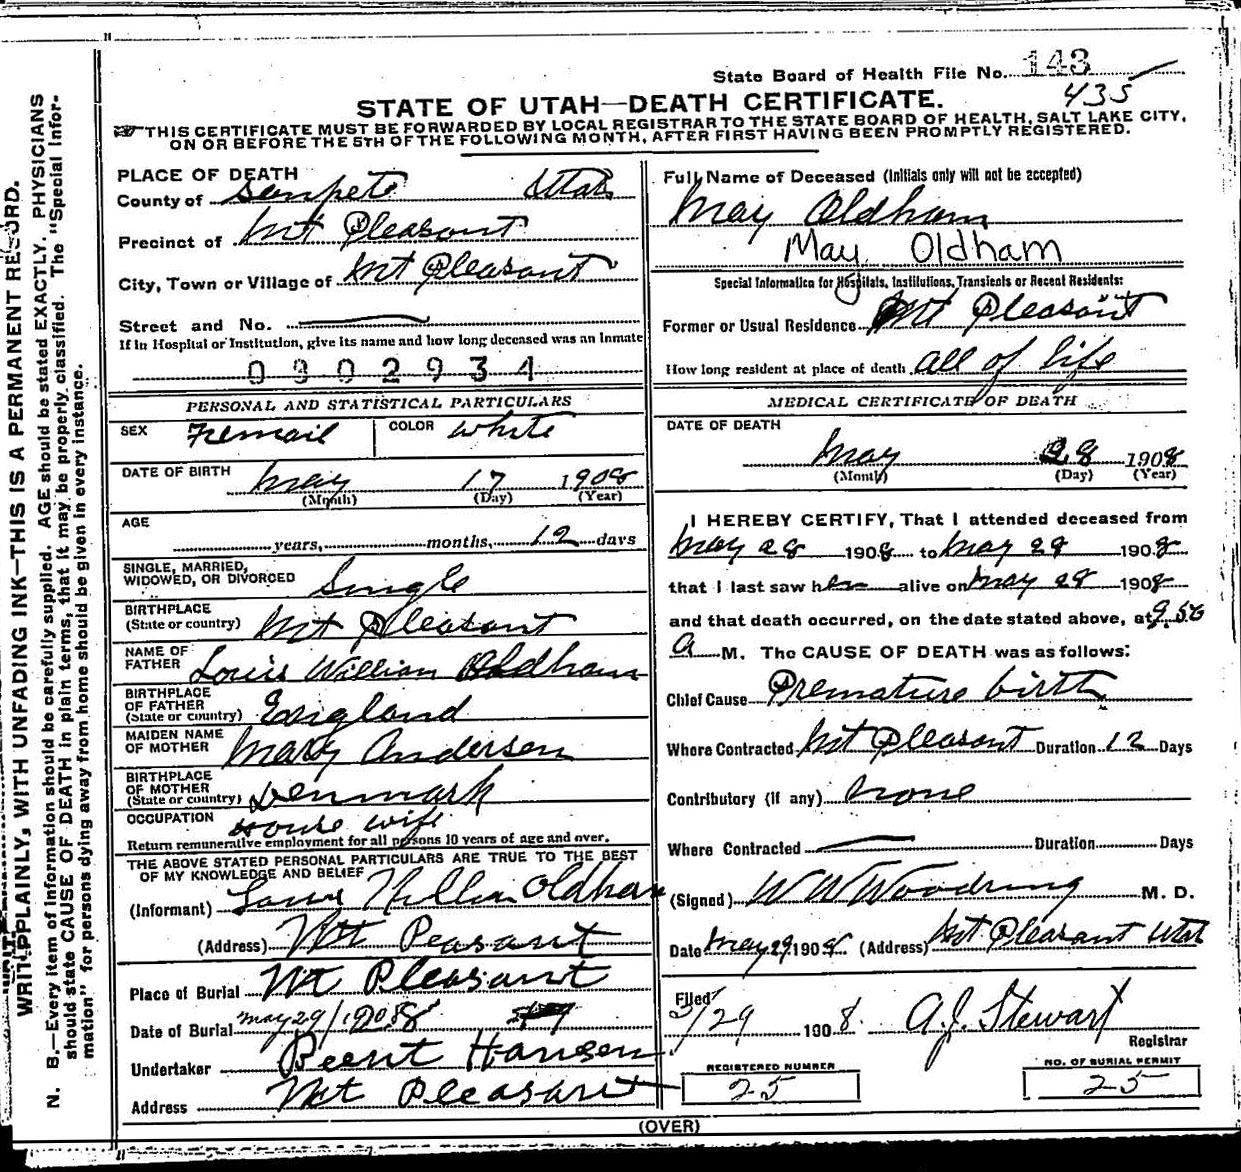 State Board of Health File No. 143
435
STATE OF UTAH—DEATH CERTIFICATE.
THIS CERTIFICATE MUST BE FORWARDED BY LOCAL REGISTRAR TO THE STATE BOARD OF HEALTH, SALT LAKE CITY,
ON OR BEFORE THE 5TH OF THE FOLLOWING MONTH, AFTER FIRST HAVING BEEN PROMPTLY REGISTERED.
WRITE PLAINLY, WITH UNFADING INK—THIS IS A PERMANENT RECORD.
N. B.—Every item of information should be carefully supplied. AGE should be stated EXACTLY. PHYSICIANS
should state CAUSE OF DEATH in plain terms, that it may be properly classified. The "Special Infor-
mation" for persons dying away from home should be given in every instance.
PLACE OF DEATH
County of Senpete Utah
Precinct of Mt Pleasant
City, Town or Village of Mt Pleasant
Street and No.
If in Hospital or Institution, give its name and how long deceased was an Inmate
0902931
PERSONAL AND STATISTICAL PARTICULARS
SEX Femail COLOR White
DATE OF BIRTH May 17 1908
(Month) (Day) (Year)
AGE
years, months, 12 days
SINGLE, MARRIED,
WIDOWED, OR DIVORCED Single
BIRTHPLACE
(State or country) Mt Pleasant
NAME OF
FATHER Louis William Oldham
BIRTHPLACE
OF FATHER
(State or country) England
MAIDEN NAME
OF MOTHER Mary Andersen
BIRTHPLACE
OF MOTHER
(State or country) Denmark
OCCUPATION House wife
Return remunerative employment for all persons 10 years of age and over.
THE ABOVE STATED PERSONAL PARTICULARS ARE TRUE TO THE BEST
OF MY KNOWLEDGE AND BELIEF
(Informant) Louis William Oldham
(Address) Mt Peasant
Place of Burial Mt Pleasant
Date of Burial May 29/1908
Undertaker Beent Hansen
Address Mt Pleasant
Full Name of Deceased (Initials only will not be accepted)
May Oldham
May Oldham
Special Information for Hospitals, Institutions, Transients or Recent Residents:
Former or Usual Residence Mt Pleasant
How long resident at place of death all of life
MEDICAL CERTIFICATE OF DEATH
DATE OF DEATH
May 28 1908
(Month) (Day) (Year)
I HEREBY CERTIFY, That I attended deceased from
May 28 1908 to May 28 1908
that I last saw her alive on May 28 1908
and that death occurred, on the date stated above, at 9.50
A M. The CAUSE OF DEATH was as follows:
Chief Cause Premature birth
Where Contracted Mt Pleasant Duration 12 Days
Contributory (if any) None
Where Contracted Duration Days
(Signed) W W Woodring M. D.
Date May 29 1908 (Address) Mt Pleasant Utah
Filed
5/29 1908. A.J. Stewart
Registrar
REGISTERED NUMBER
25
NO. OF BURIAL PERMIT
25
(OVER)